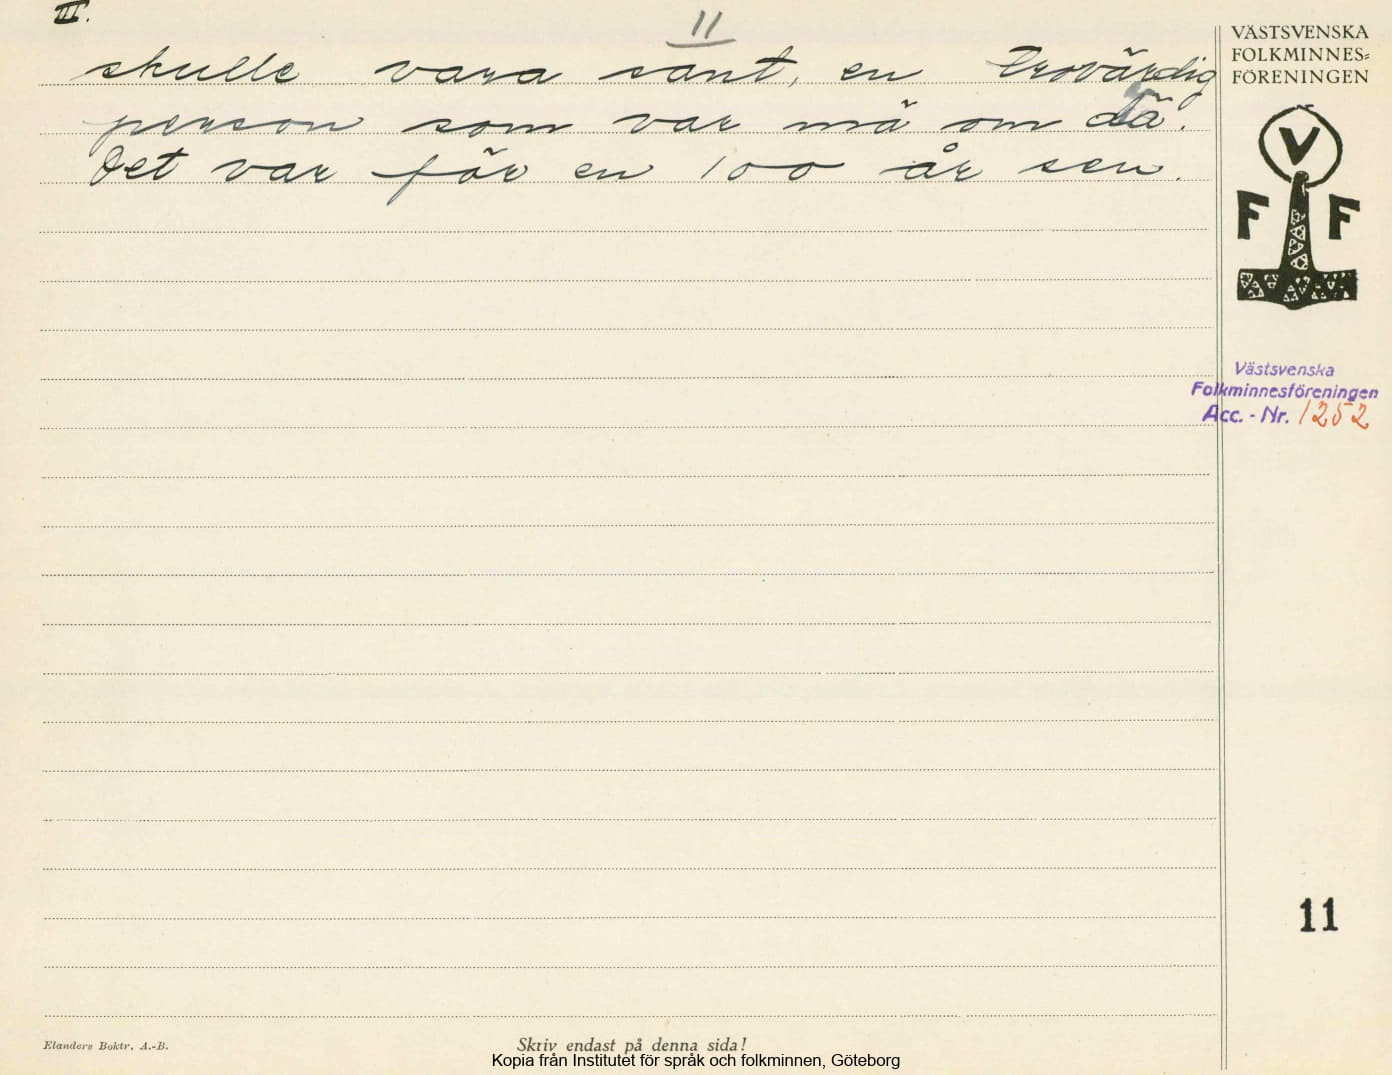 III.
11
skulle vara sant, en trovärdig
person som var mä om dä.
Det var för en 100 år sen.
VÄSTSVENSKA
FOLKMINNES=
FÖRENINGEN
V
F F
Västsvenska
Folkminnesföreningen
Acc. - Nr. 1252
11
Elanders Boktr. A.-B.
Skriv endast på denna sida!
Kopia från Institutet för språk och folkminnen, Göteborg